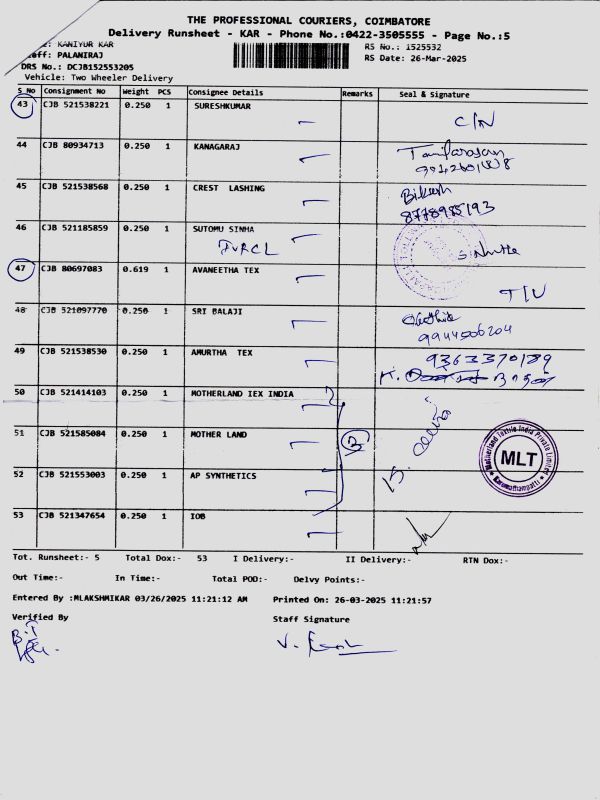 THE PROFESSIONAL COURIERS, COIMBATORE
Delivery Runsheet - KAR - Phone No.:0422-3505555 - Page No.:5
KANIYUR KAR
RS No.: 1525532
PALANIRAJ
RS Date: 26-Mar-2025
DRS No.: DCJB152553205
Vehicle: Two Wheeler Delivery
S No Consignment No Weight PCS Consignee Details Remarks Seal & Signature
43 CJB 521538221 0.250 1 SURESHKUMAR
44 CJB 80934713 0.250 1 KANAGARAJ
45 CJB 521538568 0.250 1 CREST LASHING
8778985193
46 CJB 521185859 0.250 1 SUTOMU SINHA
47 CJB 80697083 0.619 1 AVANEETHA TEX
T/U
48 CJB 521097770 0.250 1 SRI BALAJI
9944506204
49 CJB 521538530 0.250 1 AMURTHA TEX
9363370189
50 CJB 521414103 0.250 1 MOTHERLAND IEX INDIA
51 CJB 521585084 0.250 1 MOTHER LAND 3
Motherland Textile India Private Limited
MLT
Karumathampatti
52 CJB 521553003 0.250 1 AP SYNTHETICS
53 CJB 521347654 0.250 1 IOB
Tot. Runsheet:- 5 Total Dox:- 53 I Delivery:- II Delivery:- RTN Dox:-
Out Time:- In Time:- Total POD:- Delvy Points:-
Entered By :MLAKSHMIKAR 03/26/2025 11:21:12 AM Printed On: 26-03-2025 11:21:57
Verified By Staff Signature